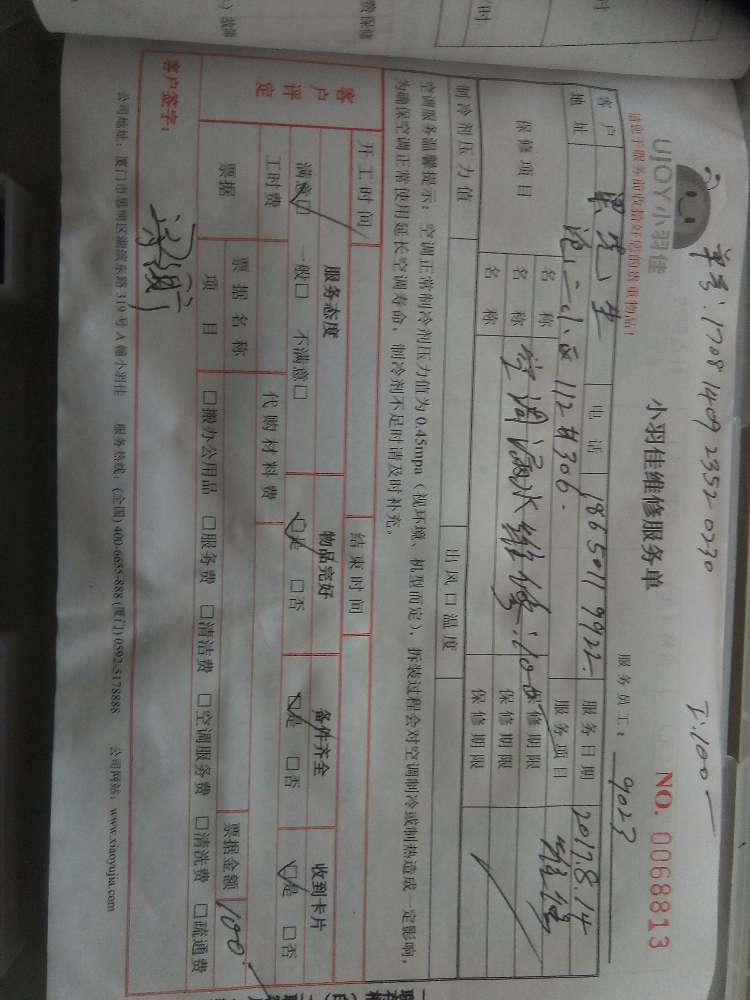 单号:1708 1409 2352 0230
I:100一
UJOY小羽佳
请您于服务前收拾好您的贵重物品!
小羽佳维修服务单
NO. 0068813
服务员工: 9023
客户
先生
电话 18650119922
服务日期 2017.8.14
地址
小区112#306.
服务项目 维修
保修项目
名称
保修期限
名称 空调漏水维修:100
保修期限
名称
保修期限
制冷剂压力值
出风口温度
空调服务温馨提示:空调正常制冷剂压力值为0.45mpa(视环境、机型而定),拆装过程会对空调制冷或制热造成一定影响,
为确保空调正常使用延长空调寿命,制冷剂不足时请及时补充。
开工时间
结束时间
客户评定
服务态度 物品完好 备件齐全 收到卡片
满意□ 一般□ 不满意□ □是 □否 □是 □否 □是 □否
工时费
代购材料费
票据
票据名称
票据金额 100
项目 □搬办公用品 □服务费 □清洁费 □空调服务费 □清洗费 □疏通费
客户签字:
公司地址:厦门市思明区湖滨东路319号A幢小羽佳 服务热线:(全国)400-6655-888 (厦门)0592-5178888 公司网站:www.xiaoyujia.com